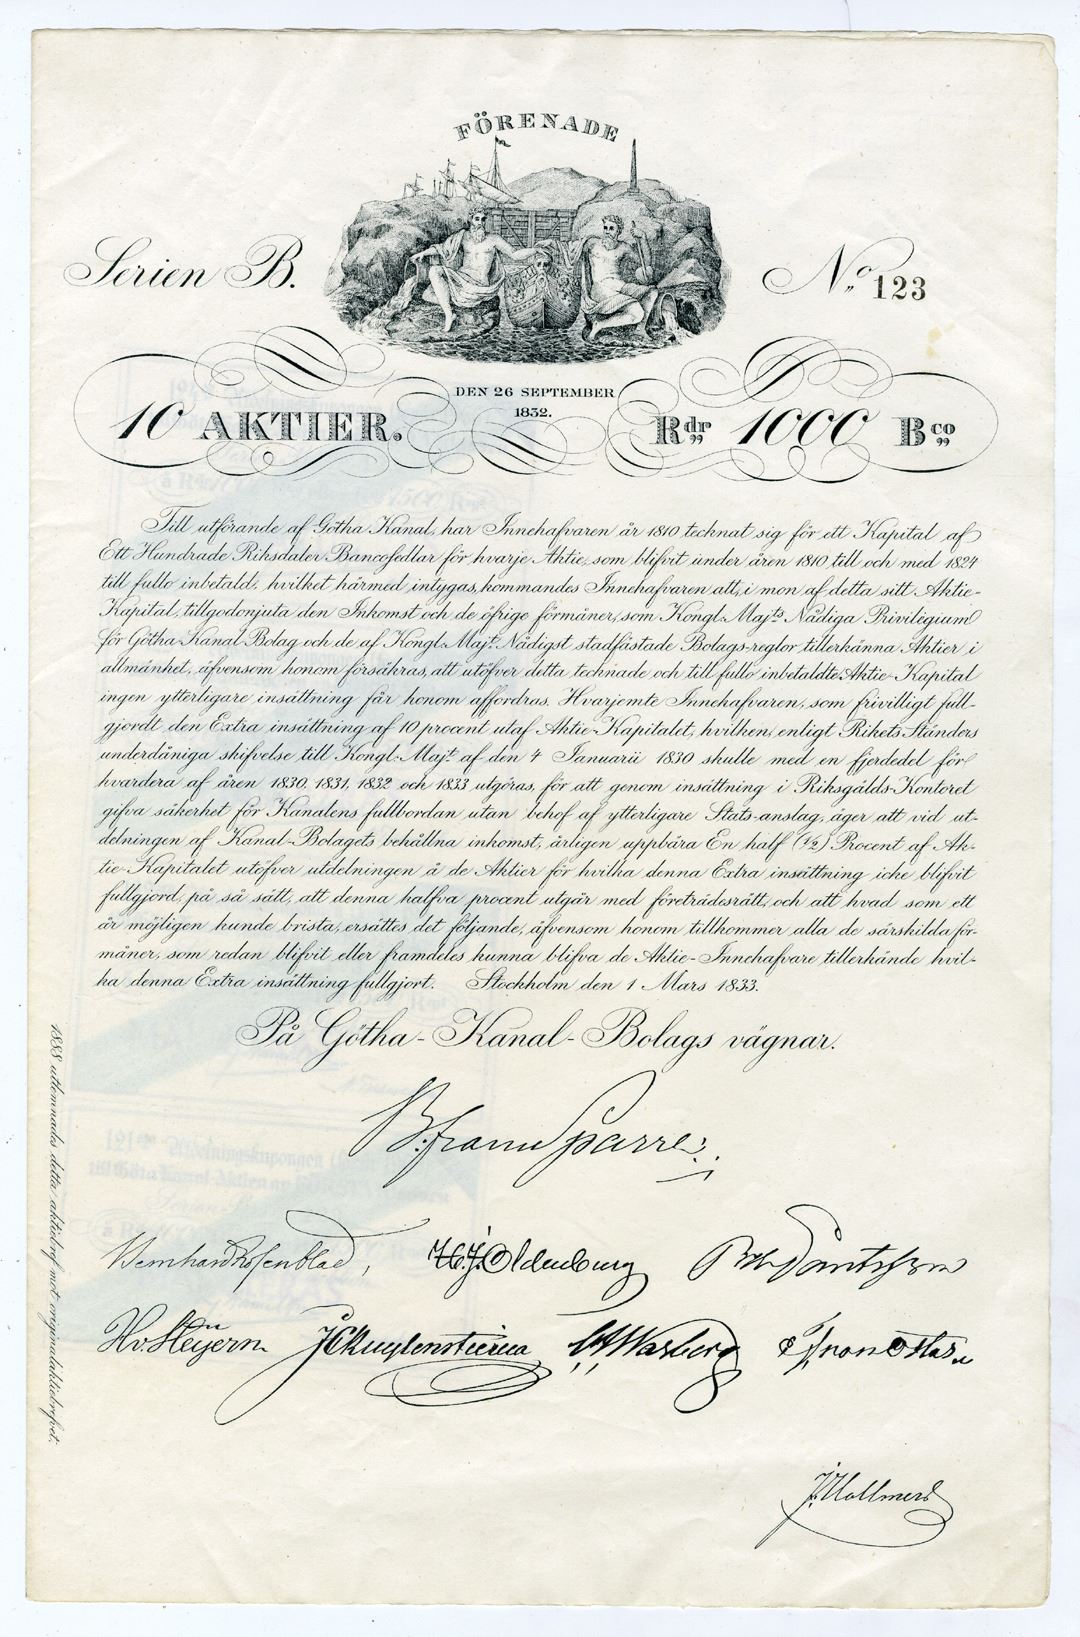 FÖRENADE
Serien B.
No 123
DEN 26 SEPTEMBER
1832.
10 AKTIER.
Rdr 1000 Bco
Till utförande af Götha Kanal, har Innehafvaren år 1810 tecknat sig för ett Kapital af
Ett Hundrade Riksdaler Bancosedlar för hvarje Aktie, som blifvit under åren 1810 till och med 1824
till fullo inbetald, hvilket härmed intygas, kommandes Innehafvaren att, i mon af detta sitt Aktie-
Kapital, tillgodonjuta den Inkomst och de öfrige förmåner, som Kongl. Majts Nådiga Privilegium
för Götha Kanal Bolag och de af Kongl. Majt Nådigst stadfästade Bolags-reglor tillerkänna Aktier i
allmänhet, äfvensom honom försäkras, att utöfver detta tecknade och till fullo inbetaldte Aktie-Kapital
ingen ytterligare insättning får honom affordras. Hvarjemte Innehafvaren, som frivilligt full-
gjordt den Extra insättning af 10 procent utaf Aktie-Kapitalet, hvilken, enligt Rikets Ständers
underdåniga skrifvelse till Kongl. Majt af den 4 Januarii 1830 skulle med en fjerdedel för
hvardera af åren 1830, 1831, 1832 och 1833 utgöras, för att genom insättning i Riksgälds-Kontoret
gifva säkerhet för Kanalens fullbordan utan behof af ytterligare Stats-anslag, äger att vid ut-
delningen af Kanal-Bolagets behållna inkomst, årligen uppbära En half (½) Procent af Ak-
tie-Kapitalet utöfver utdelningen å de Aktier för hvilka denna Extra insättning icke blifvit
fullgjord, på så sätt, att denna halfva procent utgår med företrädesrätt, och att hvad som ett
år möjligen kunde brista, ersättes det följande, äfvensom honom tillkommer alla de särskilda för-
måner, som redan blifvit eller framdeles kunna blifva de Aktie-Innehafvare tillerkände hvil-
ka denna Extra insättning fullgjort. Stockholm den 1 Mars 1833.
På Götha-Kanal-Bolags vägnar.
B. fram Sparre.
Bernhard Rosenblad,
H. J. Oldenburg
Hv Heijern
J C Kuylenstierna
Warberg
1888 utlemnades detta aktiebref mot originalaktiebrefvet.